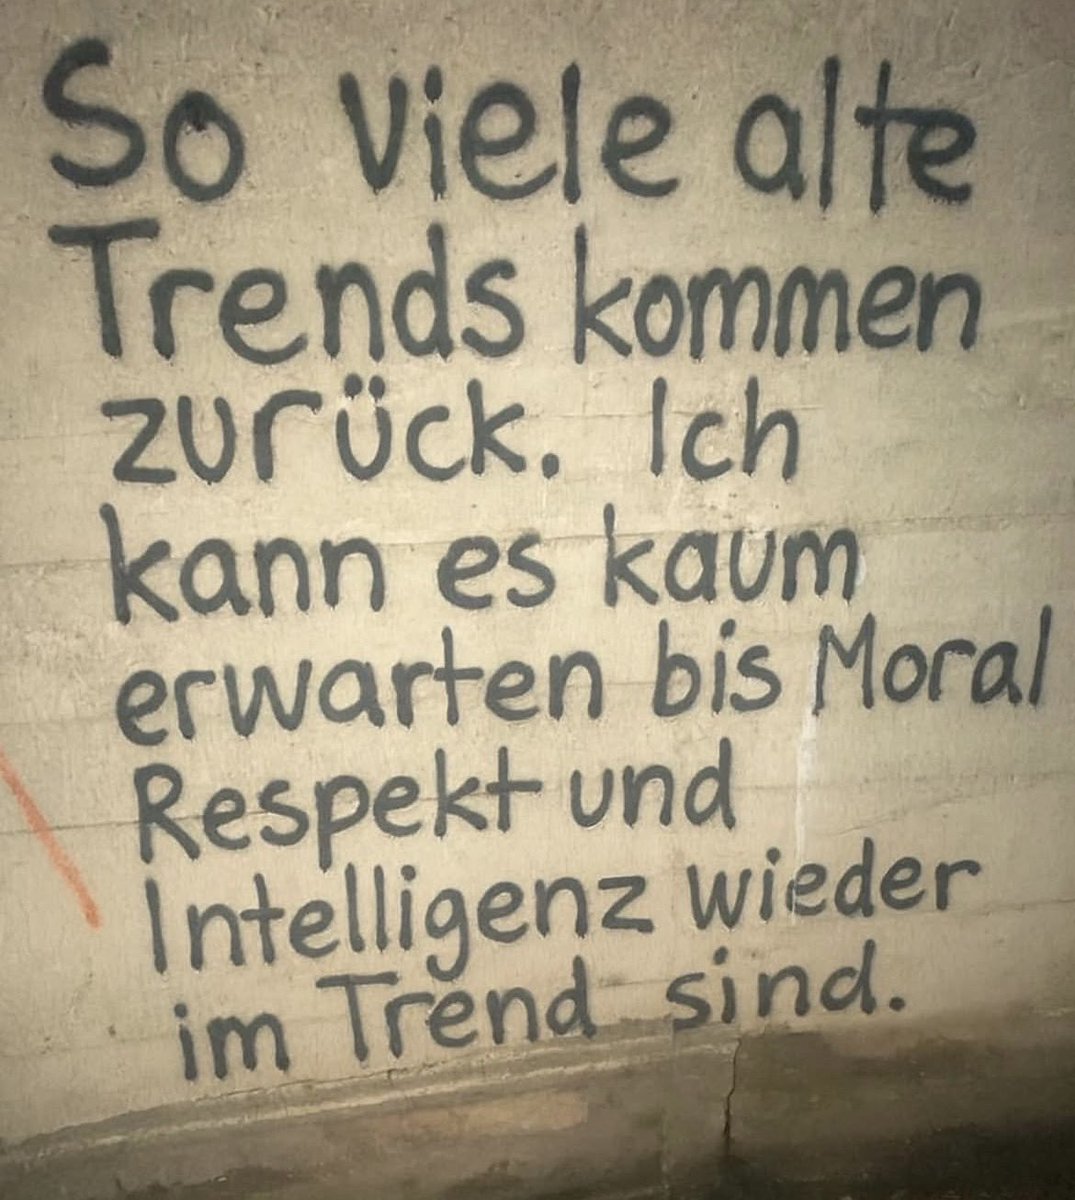 So viele alte
Trends kommen
zurück. Ich
kann es kaum
erwarten bis Moral
Respekt und
Intelligenz wieder
im Trend sind.